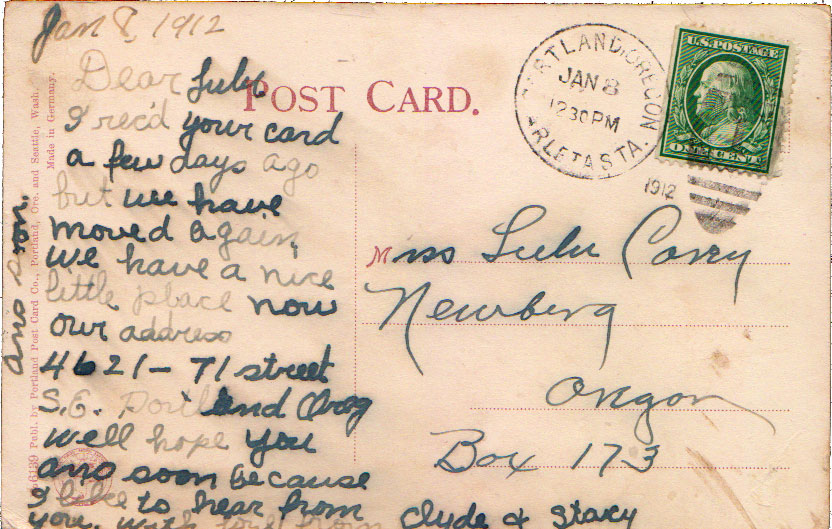 Jan 8, 1912
Dear Lulu
I rec'd your card
a few days ago
but we have
moved again,
we have a nice
little place now
our address
4621-71 street
S.E. Portland Oreg
well hope you
ans soon because
I like to hear from
you. with love from Clyde & Stacy
ans soon.
POST CARD.
PORTLAND, OREGON
JAN 8
12 30 PM
ARLETA STA.
1912
U.S. POSTAGE
ONE CENT
Miss Lulu Carey
Newberg
Oregon
Box 173
6139 Publ. by Portland Post Card Co., Portland, Ore. and Seattle, Wash.
Made in Germany.